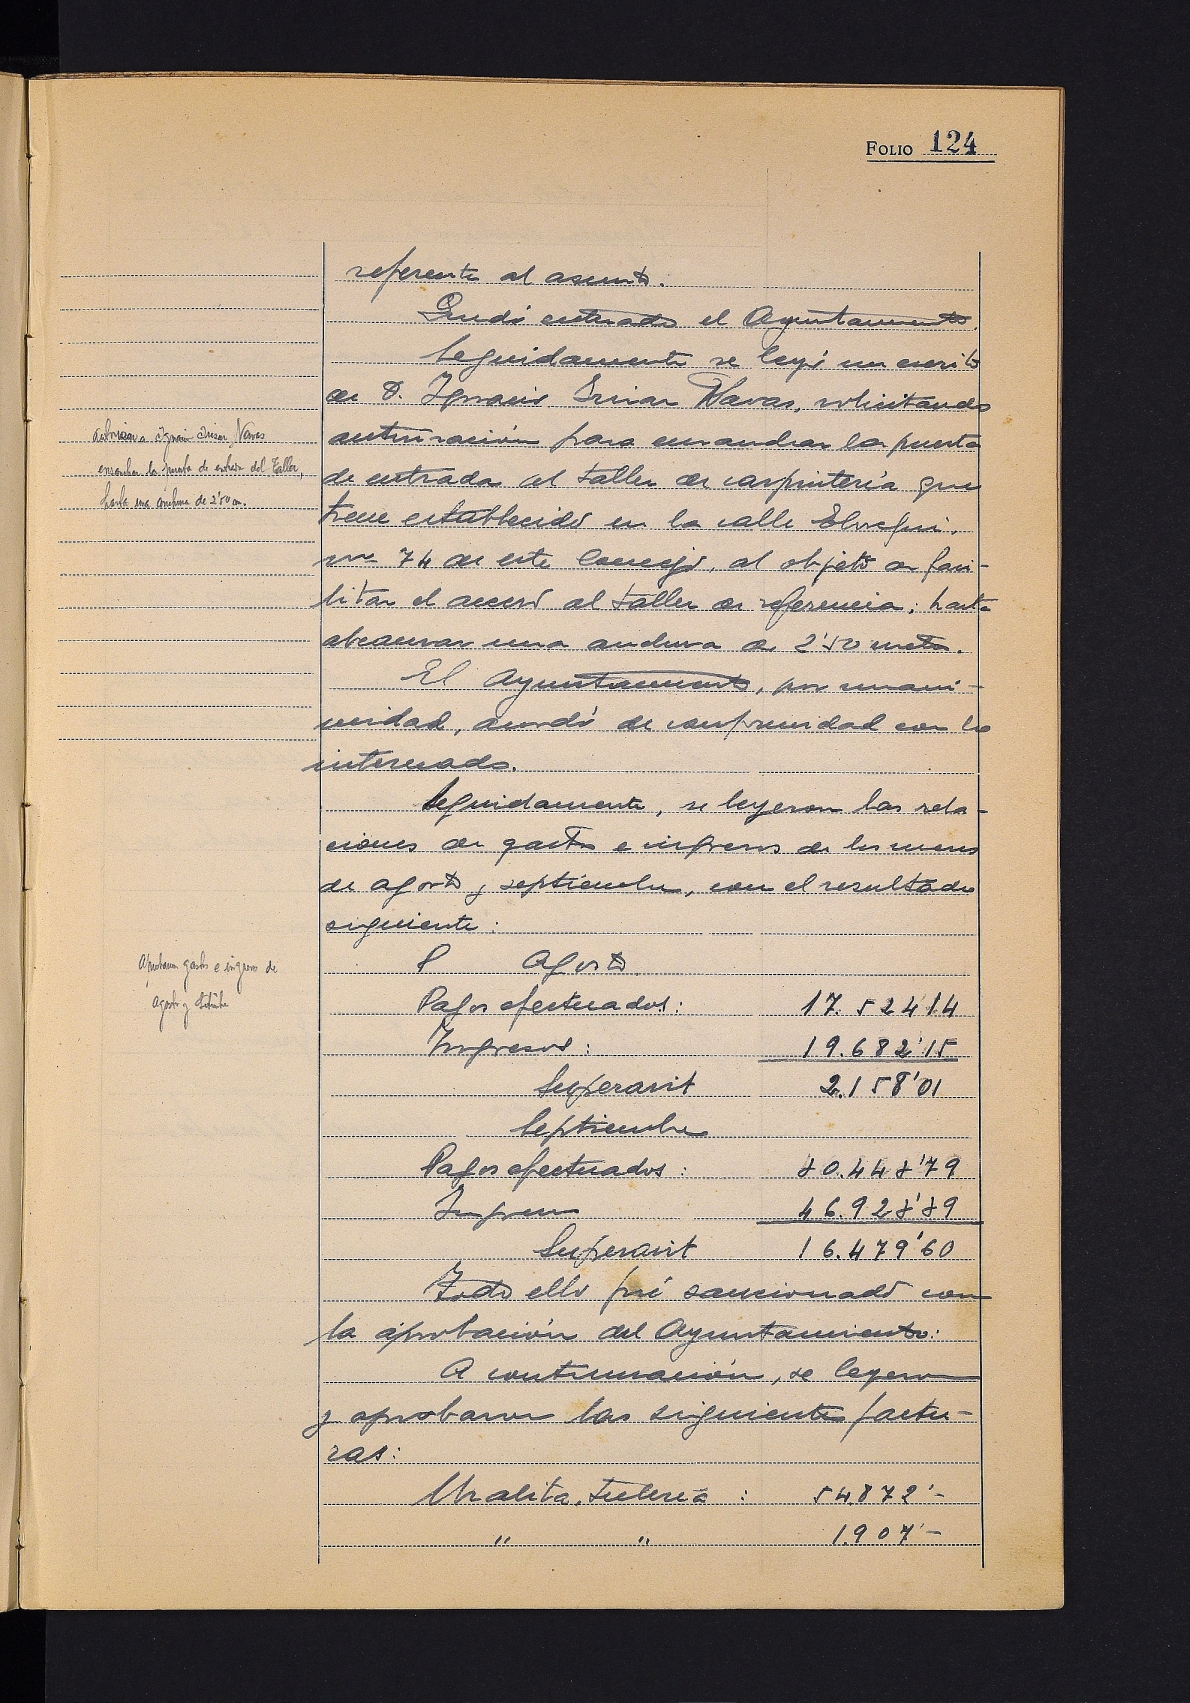 FOLIO 124
referente al asunto.
Quedó enterado el Ayuntamiento.
Seguidamente se leyó un escrito
de D. Ignacio Navas, solicitando
autorización para ensanchar la puerta
de entrada al taller de carpintería que
tiene establecido en la calle Elosegui,
74 de este Concejo, al objeto de faci-
litar el acceso al taller de referencia, hasta
alcanzar una anchura de 2'50 metros.
El Ayuntamiento, por unani-
midad, acordó de conformidad con lo
interesado.
Seguidamente, se leyeron las rela-
ciones de gastos e ingresos de los meses
de agosto y septiembre, con el resultado
siguiente:
Agosto
Pagos efectuados: 17.524'14
Ingresos: 19.682'15
Superavit 2.158'01
Septiembre
Pagos efectuados: 30.448'79
Ingresos 46.928'39
Superavit 16.479'60
Todo ello fué sancionado con
la aprobación del Ayuntamiento.
A continuación, se leyeron
y aprobaron las siguientes factu-
ras:
Uralita, tubería : 54872'-
" " 1.907'-
Navas
ensanchar la puerta de entrada del Taller,
hasta una anchura de 2'50 m.
Aprobaron gastos e ingresos de
Agosto y